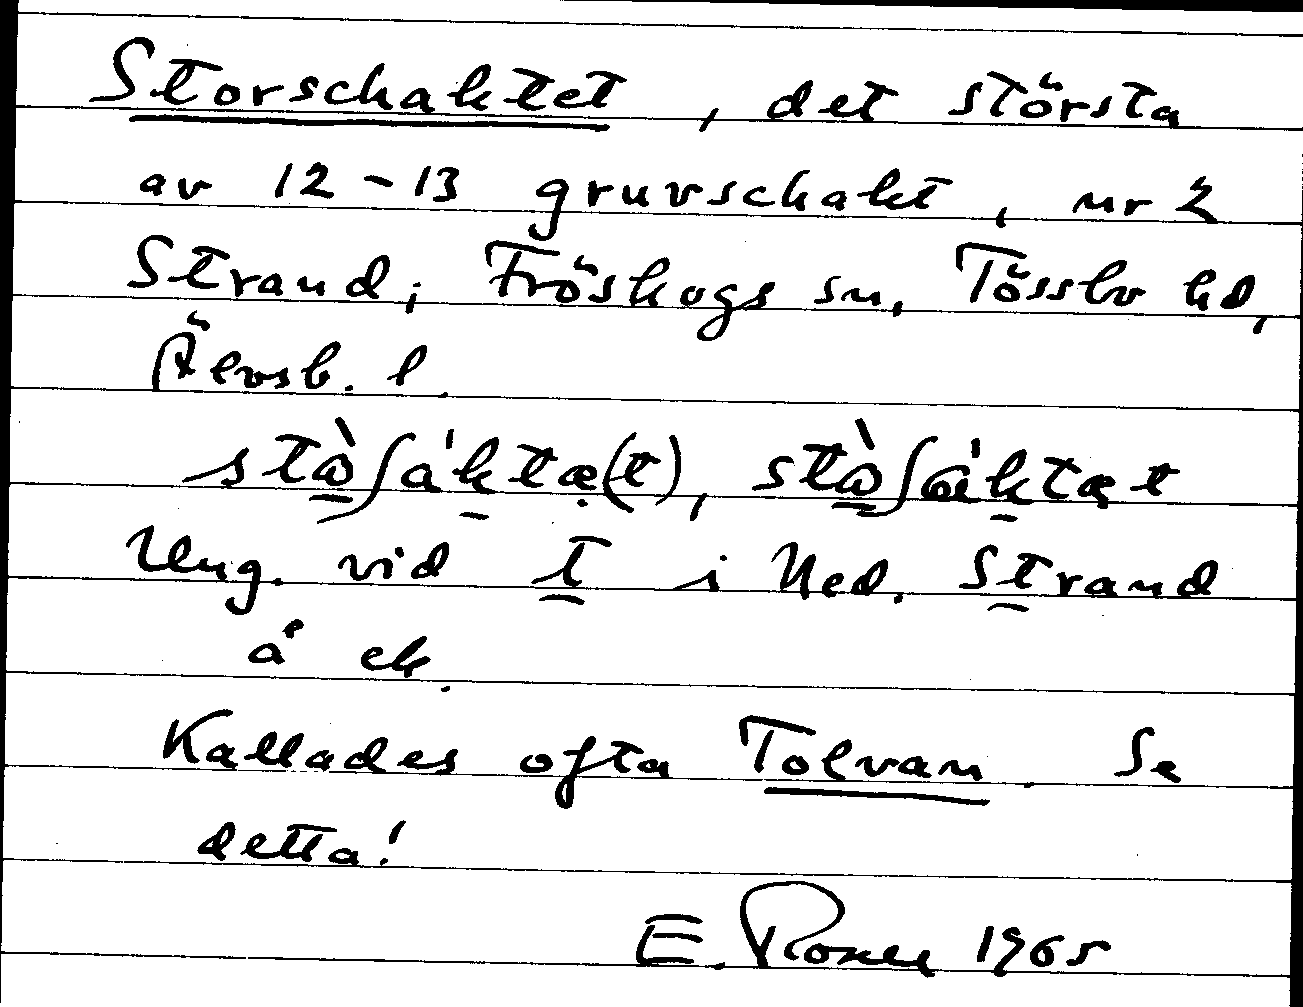 Storschaktet, det största
av 12-13 gruvschakt, nr 2
Strand, Fröskogs sn, Tössbo hd,
Älvsb. l.
Ung. vid T i Ned. Strand
å ek.
Kallades ofta Tolvan. Se
detta!
E. Rosell 1965